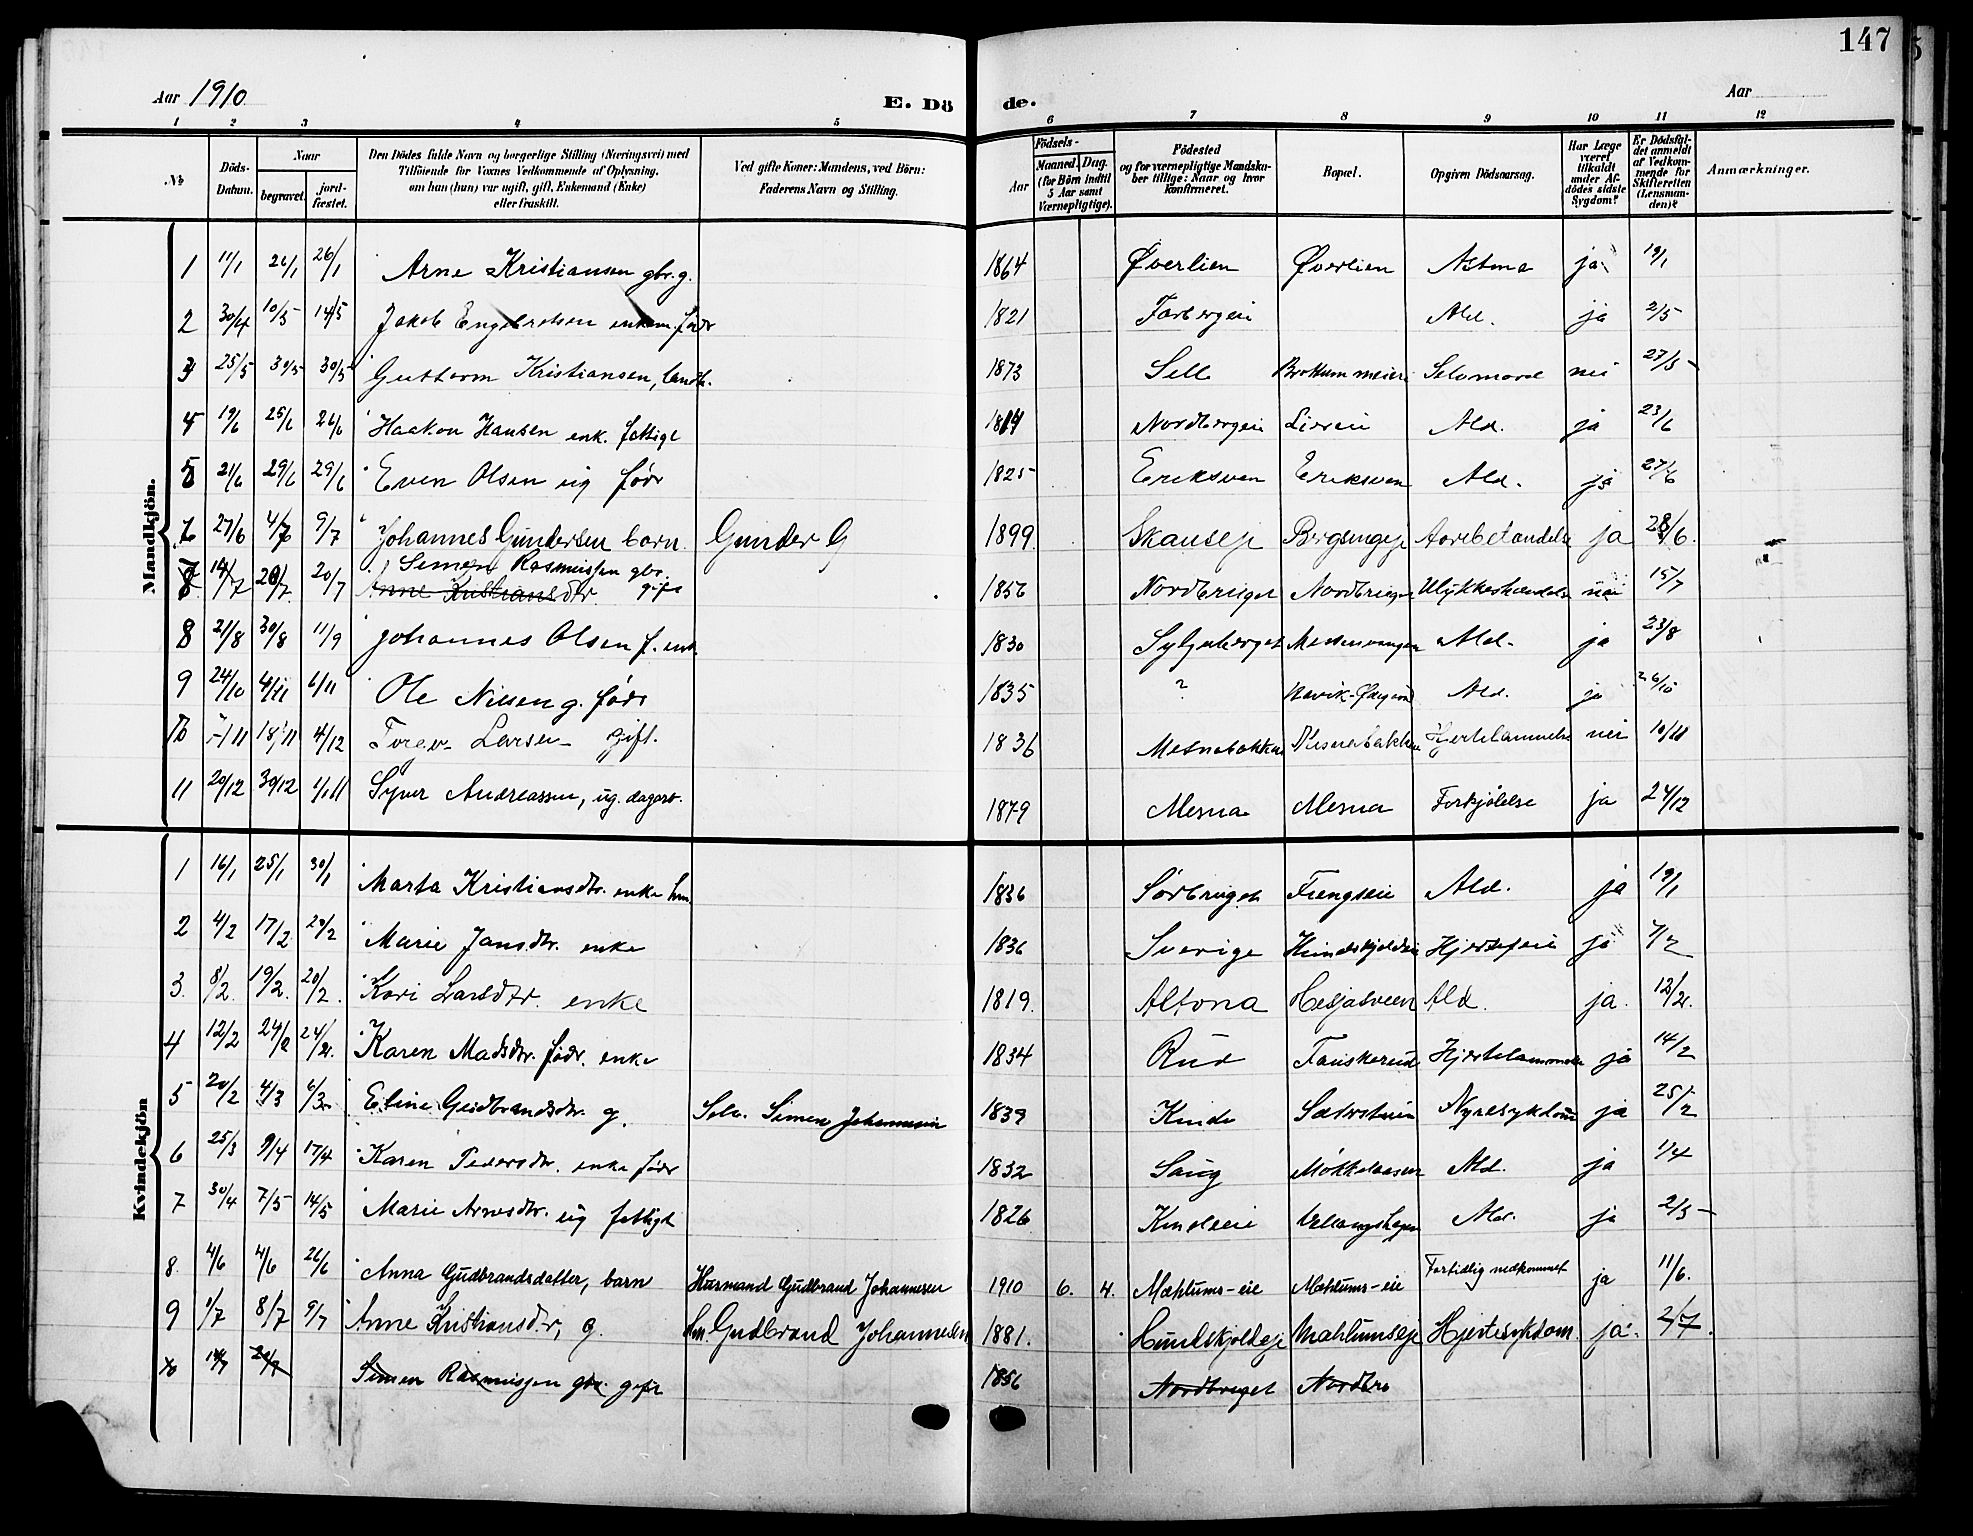 147
Aar 1910
E. Dö de.
Aar
1 2 3 4 5 6 7 8 9 10 11 12
No
Döds-Datum.
Naar
begravet.
jord-fæstet.
Den Dödes fulde Navn og borgerlige Stilling (Næringsvei) med Tilföiende for Voxnes Vedkommende af Oplysning, om han (hun) var ugift, gift, Enkemand (Enke) eller fraskilt.
Ved gifte Koner: Mandens, ved Börn: Faderens Navn og Stilling.
Födsels-
Aar
Maaned. Dag.
(for Börn indtil 5 Aar samt Værnepligtige).
Födested og for værnepligtige Mandskaber tillige: Naar og hvor konfirmeret.
Bopæl.
Opgiven Dödsaarsag.
Har Læge været tilkaldt under Afdödes sidste Sygdom?
Er Dödsfaldet anmeldt af Vedkommende for Skifteretten (Lensmanden)?
Anmærkninger.
Mandkjön.
1 11/1 26/1 26/1 Arne Kristiansen gbr. g. 1864 Øverlien Øverlien Astma ja 19/1
2 30/4 10/5 14/5 Jakob Engebretsen enkem. födr 1821 Farbergeie Ald. ja 2/5
3 25/5 30/5 30/5 Guttorm Kristiansen, landh. 1873 Sell Brottum meieri Selvmord nei 27/5
4 19/6 25/6 26/6 Haakon Hansen enk. fattigl 1814 Nordbergeie Ald. ja 23/6
5 21/6 29/6 29/6 Even Olsen ug födr 1825 Eriksven Eriksven Ald. ja 27/6
6 27/6 4/7 9/7 Johannes Gundersen barn. Gunder G 1899 Skauseje Bergsengeje ja 28/6.
7 14/7 20/7 20/7 Simen Rasmussen gbr. gift 1856 Nordbruget Nordbruget Ulykkeshændelse nei 15/7
Anne Kristiansdtr.
8 21/8 30/8 11/9 Johannes Olsen f. enk. 1830 Syljuberget Ald. ja 23/8
9 24/10 4/11 6/11 Ole Nilsen g. födr 1835 ? Ald. ja 26/10
10 7/11 18/11 4/12 Larsen gift. 1836 Mesnabakken Mesnabakken Hjertelammelse nei 10/11
11 20/12 30/12 1/1 11 Syver Andreassen, ug. dagarb. 1879 Mesna Mesna Forkjölelse ja 24/12
Kvindekjön
1 16/1 25/1 30/1 Marta Kristiansdtr. enke 1836 Sörbruget Fengseie Ald. ja 19/1
2 4/2 17/2 20/2 Marie Jansdtr. enke 1836 Sverige Hundskjoldeie Hjertefeil ja 7/2
3. 8/2. 19/2. 20/2. Kari Larsdtr. enke 1819. Altona Hesjasveen Ald. ja. 12/2.
4 12/2 24/2 24/2. Karen Madsdtr. födr. enke 1834 Rud Fauskerud Hjertelammelse ja 14/2
5 20/2 4/3 6/3 Eline Gudbrandsdtr. g. Selv. Simen Johannesen 1839 Kinde Nyresykdom ja 25/2
6 25/3 9/4 17/4 Karen Pedersdtr. enke födr 1832 Saug Ald. ja 1/4
7 30/4 7/5 14/5 Marie Arnesdtr. ug fattigl 1826 Kindseie Ald. ja 2/5
8. 4/6 4/6 26/6 Anna Gudbrandsdatter, barn Husmand Gudbrand Johannesen 1910 6. 4. Mæhlums-eie Mæhlums-eie Fortidlig nedkommet ja 11/6.
9 1/7 8/7 9/7 Anne Kristiansdtr, g. Hm. Gudbrand Johannesen 1881. Hundskjoldeje Mæhlumseje Hjertesykdom. ja. 2/7.
10 14/7 20/7 Simen Rasmussen gbr. gift 1856 Nordbruget Nordbru